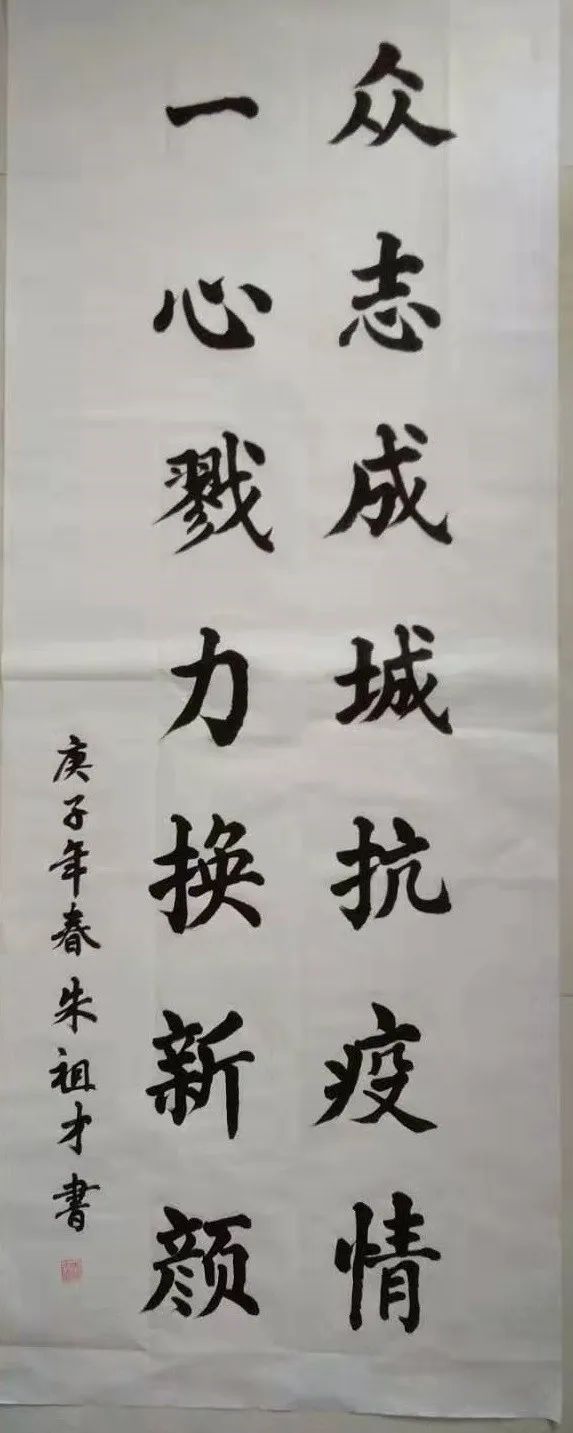 众志成城抗疫情
一心戮力换新颜
庚子年春朱祖才書